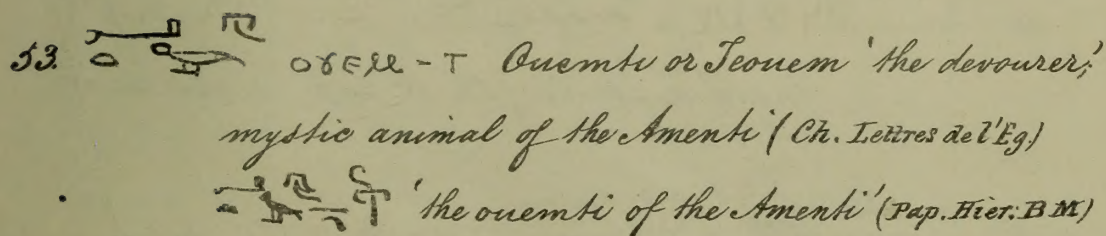 53. ⲟⲩⲉⲙ - ⲧ Ouemti or Teouem 'the devourer;'
mystic animal of the Amenti (Ch. Lettres de l'Eg.)
'the ouemti of the Amenti' (Pap. Hier: B M)